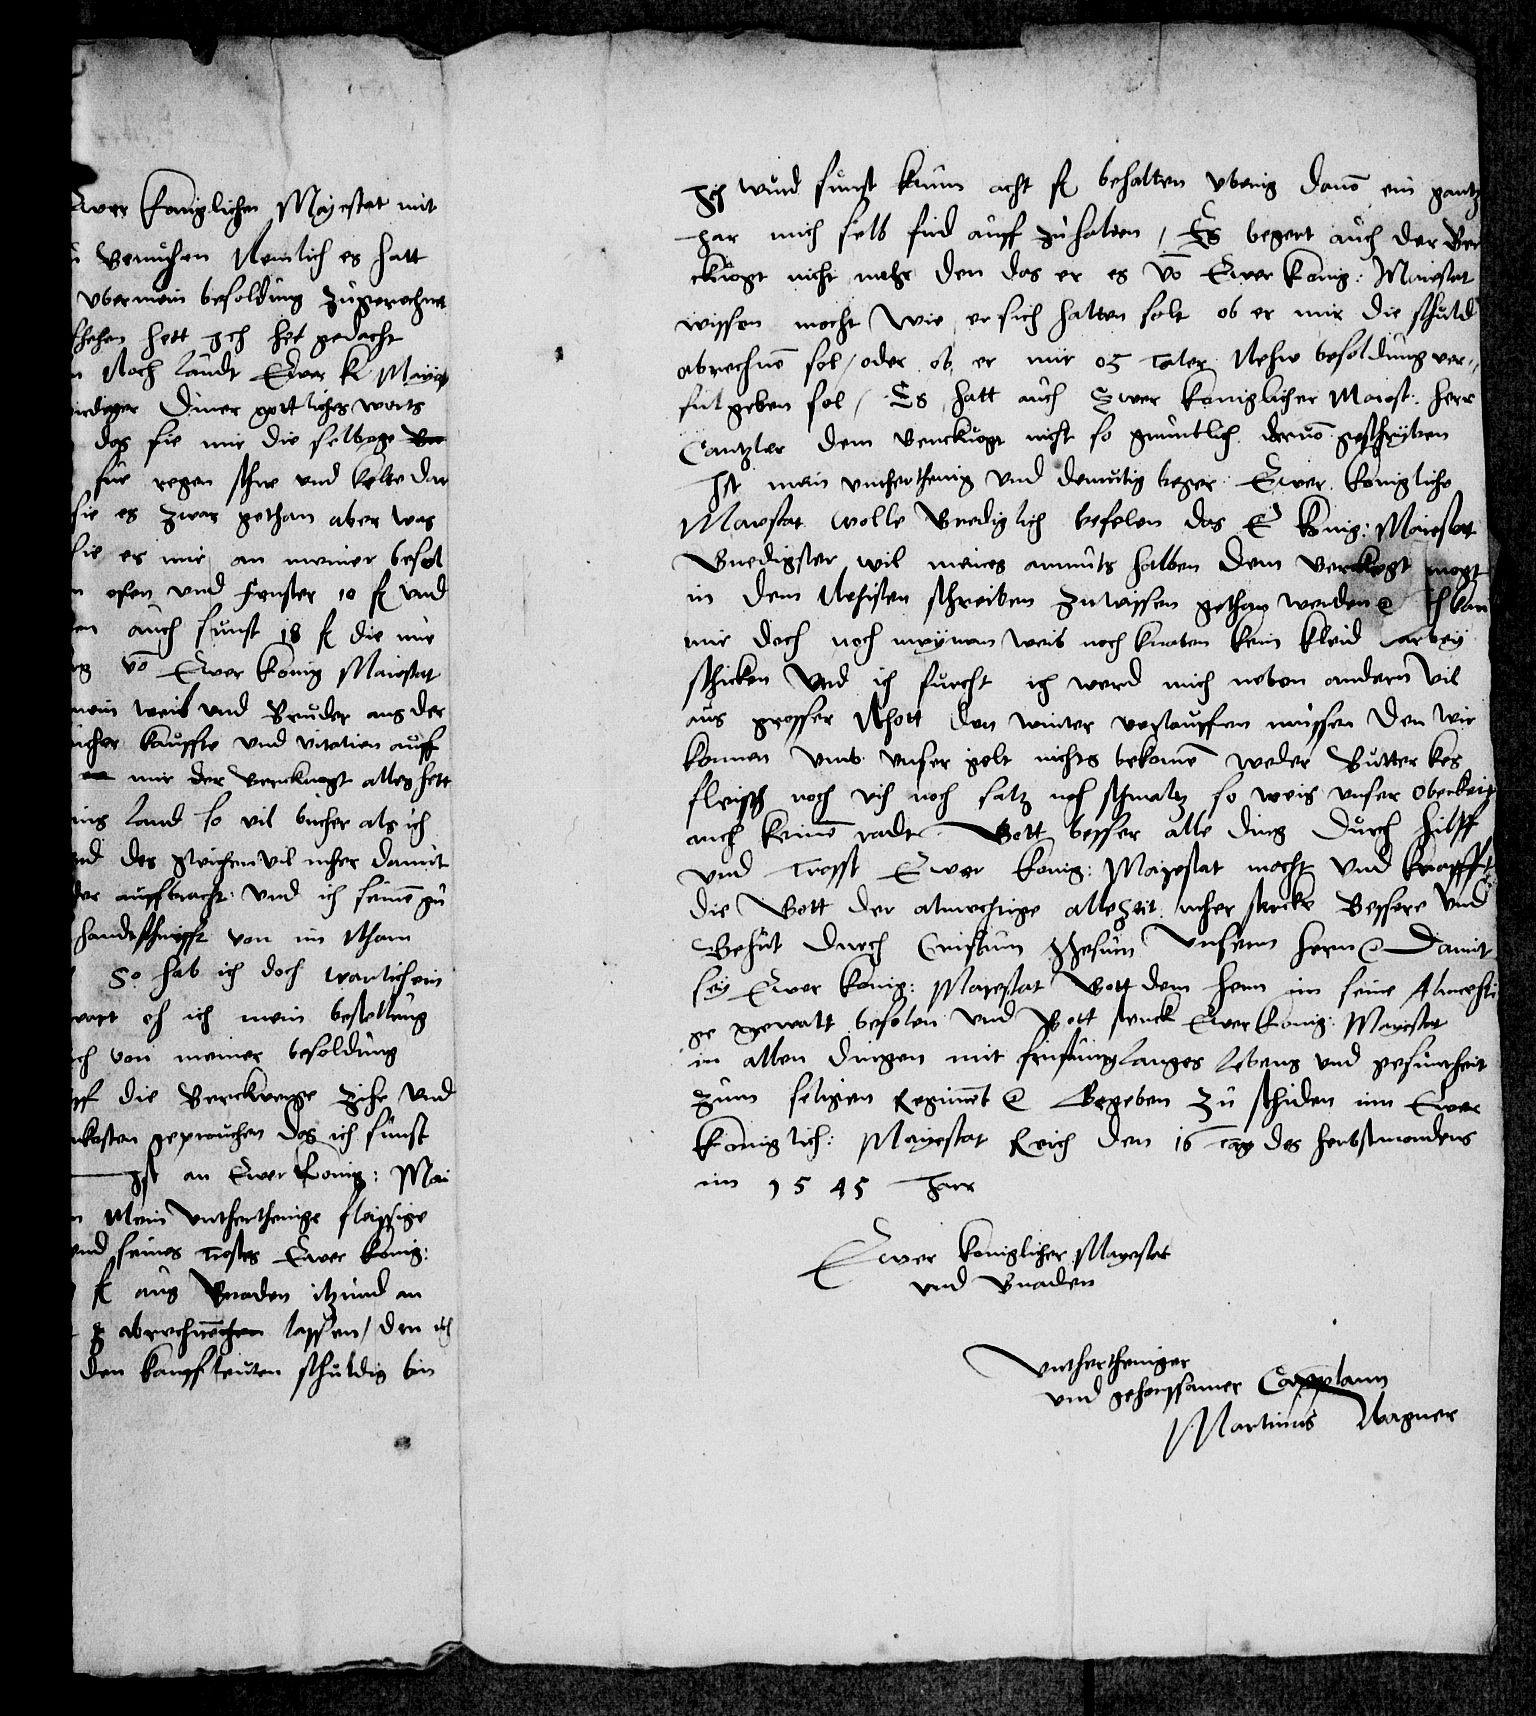 Ewer koniglichen Mayestat mit
bemuhen Nemlich es hatt
uber mein besoldung zugerechnet
schehen hett Ich het gedacht
Noch landt Ewer k Mayes
wirdiger diner gottliches worts
das sie mir die selbege
fur regen schne und kelte dar
sie es zwar gethan aber was
sie es mir an meiner besol
ofen und fenster 10 fl und
auch sunst 18 fl die mir
vo Ewer konig Maiestat
mein weib und Bruder aus der
bucher kauffte und vitalien auff
mir der Berckvogt alles hett
ins land so vil bucher als ich
und des gleichen vil meher damit
der auffbracht und ich seine zu
handtschryfft von im Nham
So hab ich doch warlich ein
wart eh ich mein bestellung
ich von meiner besoldung
uff die Berckwerge zihe und
unkosten geprauchen Das ich sunst
Ist an Ewer konig: Mai
Mein unthertheinige fleyssige
und seines trostes Ewer konig:
fl aus Gnaden itzund an
abrechnen lassen / den ich
den kauffleuten schuldig bin
Ich wurd sunst kaum acht fl behalten vberig dauo ein gantz
Jar mich selb find auff zuhalten / Es begert auch der Ber
ckvogt nicht mehr den das er es vo Ewer konig: Maiestat
wissen mocht wie er sich halten solt ob er mir die schuld
abrechne sol / oder ob er mir 05 taler Nehw besoldung ver
ful geben sol / Es hatt auch Ewer koniglicher Maiest: herr
Cantzler dem Berckvogt nicht so gruntlich daruo geschryben
Ist mein unterthenig und demutig beger Ewer konigliche
Mayestat wolle Gnediglich befelen das E konig: Maiestat
Gnedigster wil meines armuts halben dem Berckvogt mogt
in dem Nehsten schreiben zu wissen gethan werden Ich kan
mir doch noch meynem weib noch knaben kein kleid
schicken Und ich furcht ich werd mich neben andern vil
aus grosser Nhott den winter verlauffen mussen den wir
konnen umb unser gelt nichts bekome weder Butter kes
fleisch noch vich noch saltz noch schmaltz so weis unser Oberkeit
auch keinen radt Gott besser alle ding Durch hilff
und Trost Ewer konig: Mayestat macht und krafft
die Gott der almechtige allezeit meher stercke Bessere und
Behut durch Cristum Jhesum Unsern herrn Damit
sey Ewer konig: Mayestat Gott dem hern in seine Almechti
ge gewalt befolen und Gott sterck Ewer konig: Mayestat
in allen dingen mit fristung langes lebens und gesuntheit
zum seligen Regiment Gegeben zu schiden im Ewer
koniglich: Mayestat Reich den 16 Tag des herbstmonders
im 1545 Jarr
Ewer koniglicher Mayestat
und Gnaden
Untherthenniger
und gehorssamer Capplann
Martinus Wagner